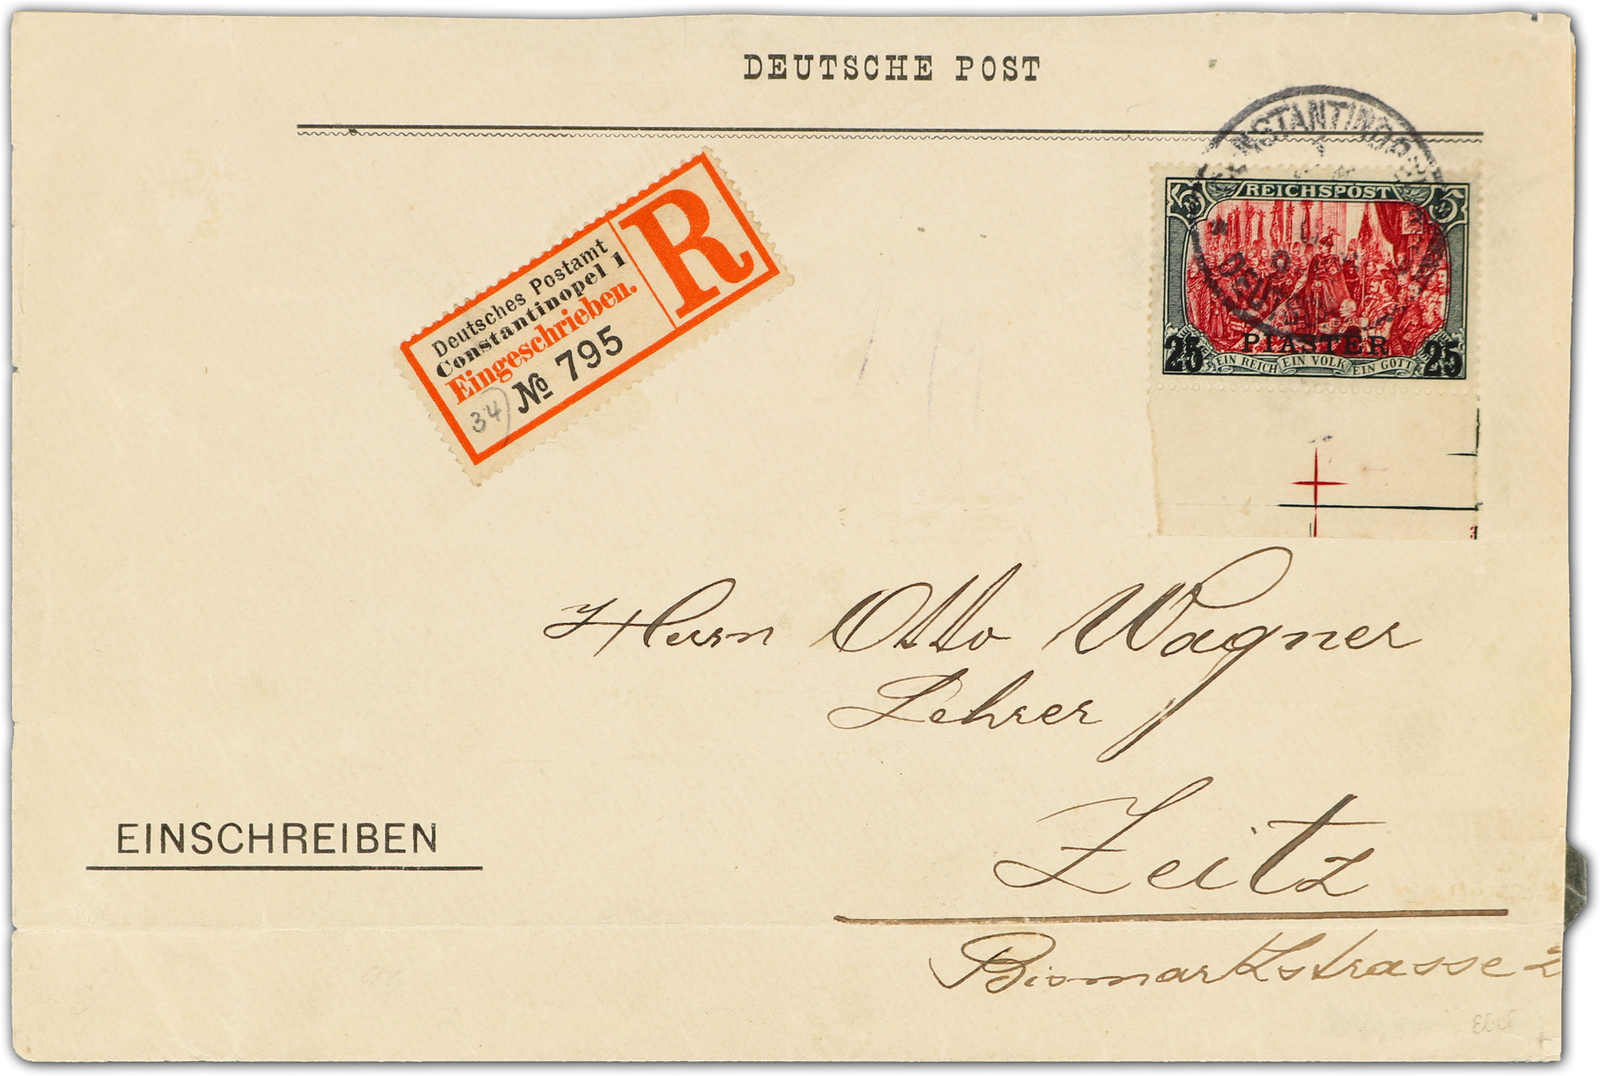 DEUTSCHE POST
Deutsches Postamt
Constantinopel 1
Eingeschrieben.
№ 795
R
34
CONSTANTINOPEL
5 REICHSPOST 5
25 PIASTER 25
EIN REICH EIN VOLK EIN GOTT
Herrn Otto Wagner
Lehrer
Zeitz
Bismarkstrasse 2
EINSCHREIBEN